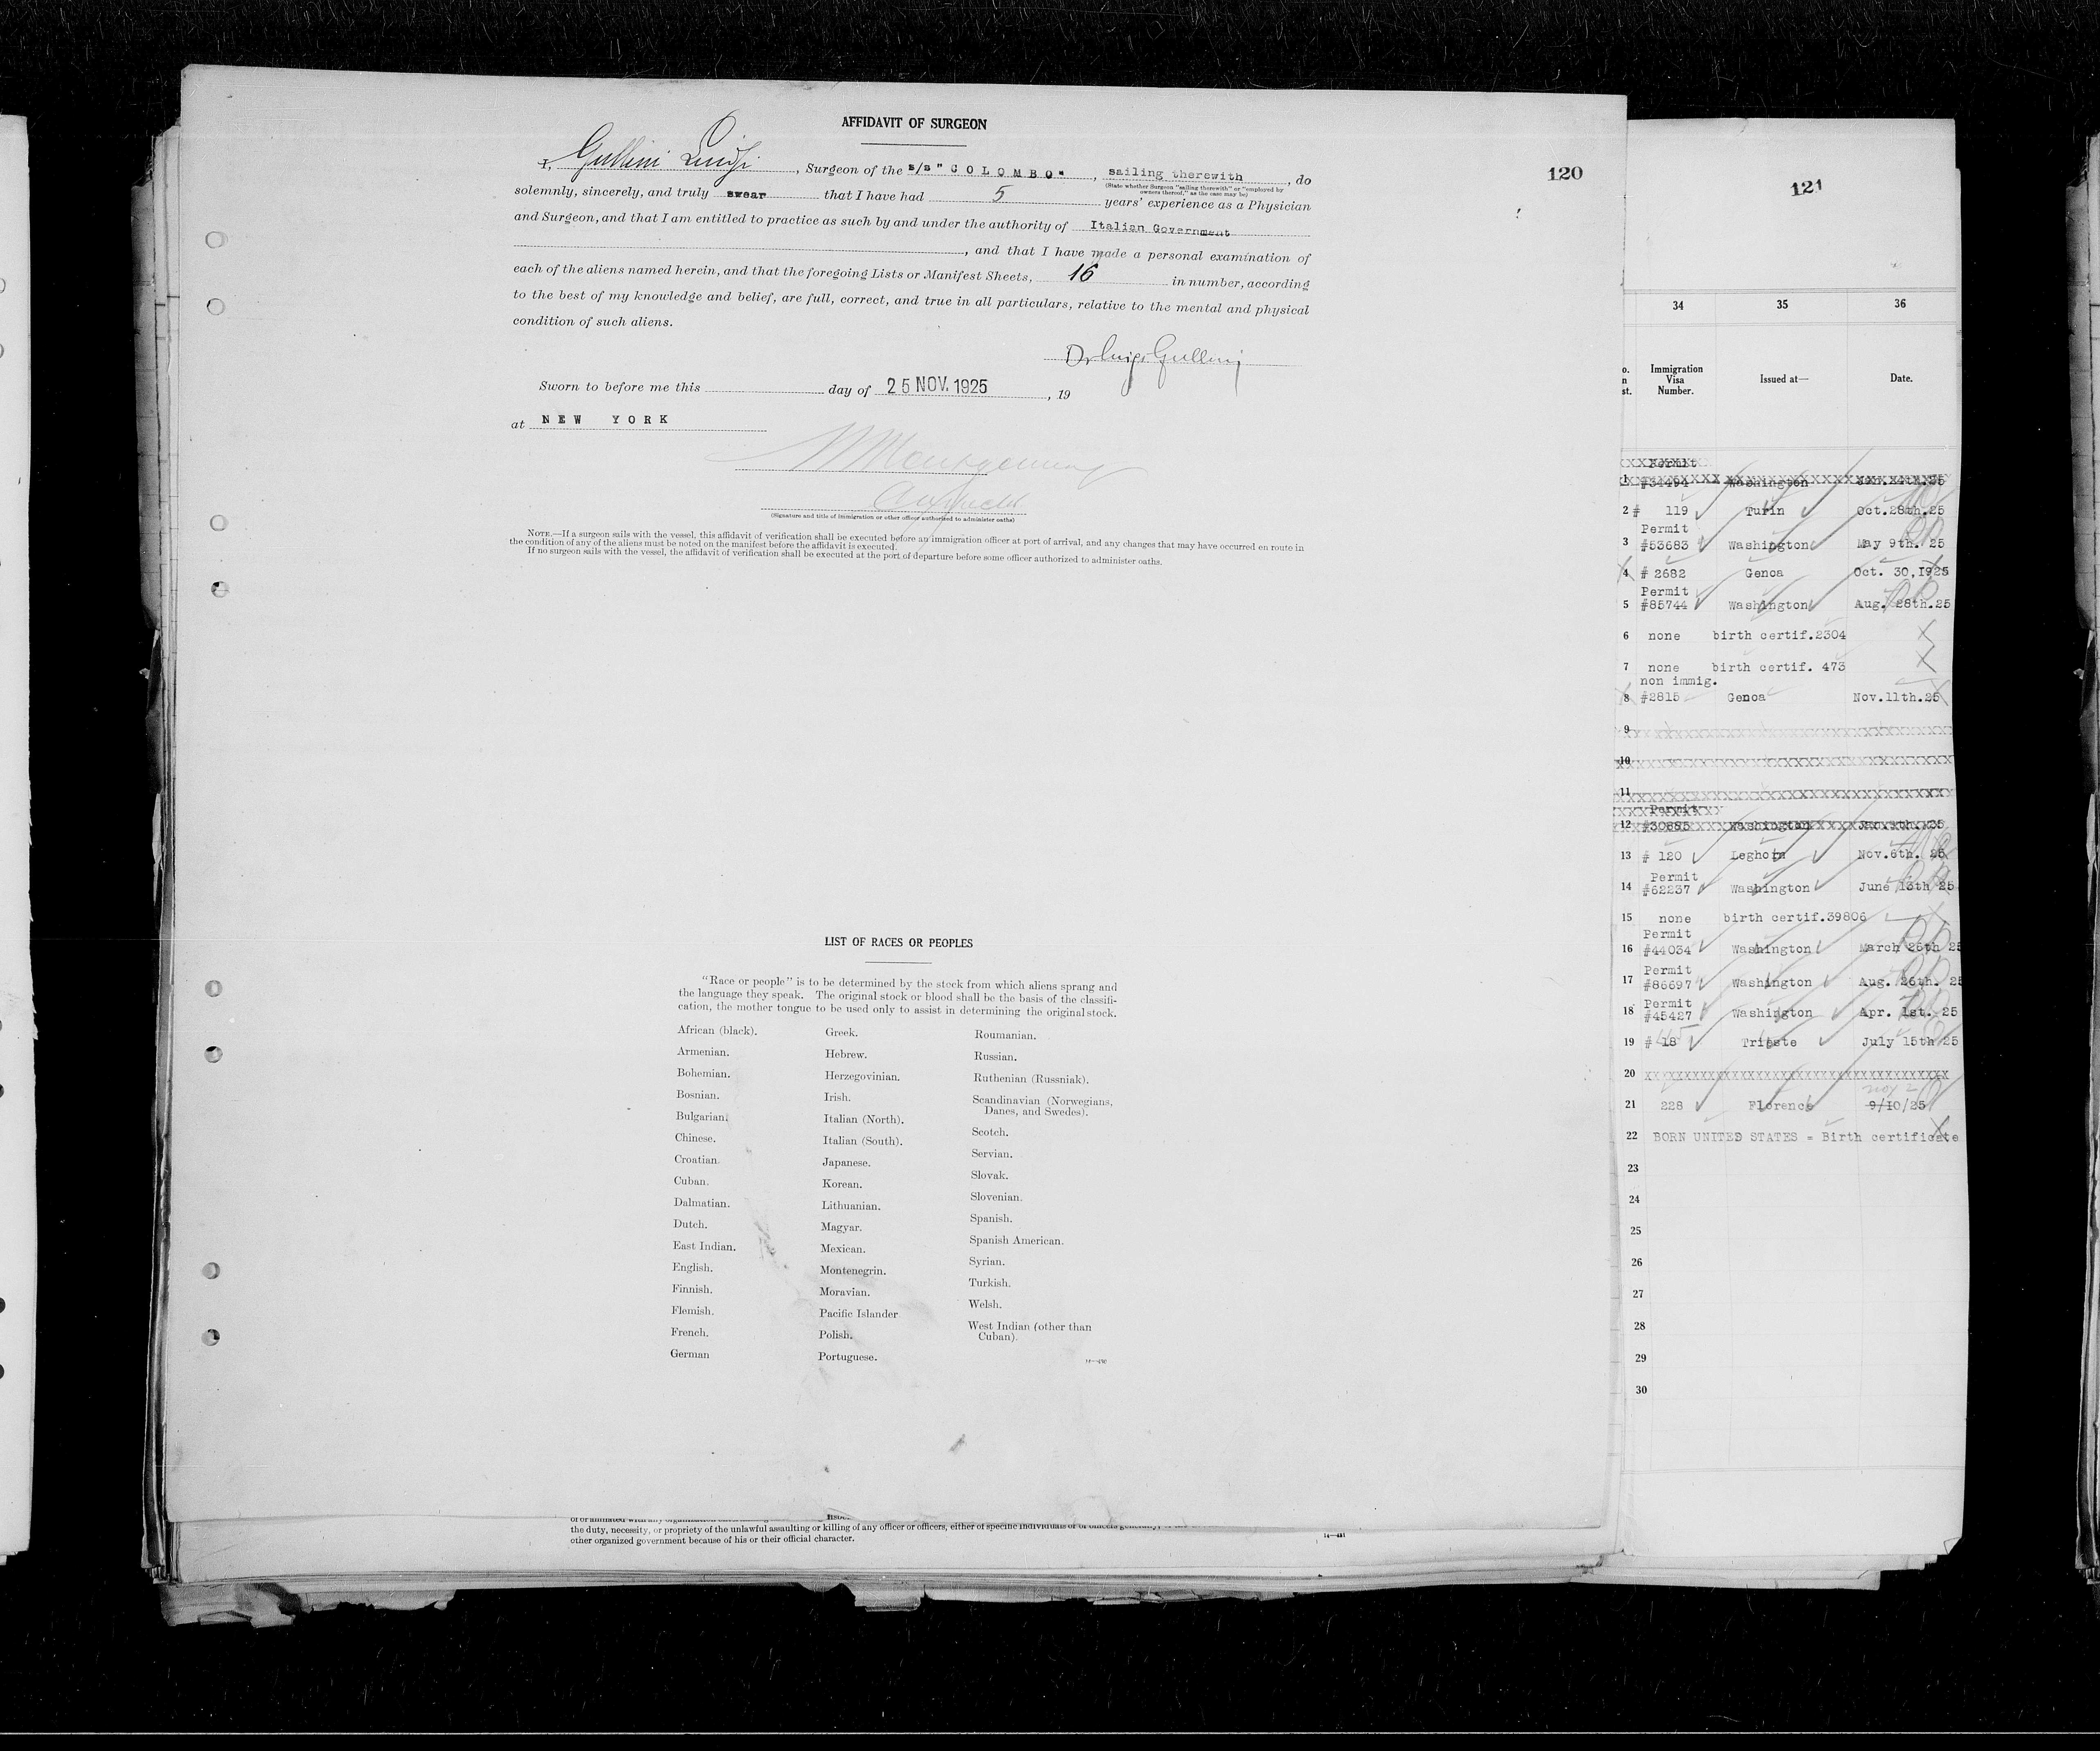 AFFIDAVIT OF SURGEON
120
I, Gullini Luigi, Surgeon of the s/s "COLOMBO", sailing therewith, do
(State whether Surgeon "sailing therewith" or "employed by
owners thereof," as the case may be)
solemnly, sincerely, and truly swear that I have had 5 years' experience as a Physician
and Surgeon, and that I am entitled to practice as such by and under the authority of Italian Government
, and that I have made a personal examination of
each of the aliens named herein, and that the foregoing Lists or Manifest Sheets, 16 in number, according
to the best of my knowledge and belief, are full, correct, and true in all particulars, relative to the mental and physical
condition of such aliens.
Dr Luigi Gullini
Sworn to before me this day of 25 NOV. 1925, 19
at NEW YORK
Montgomery
(Signature and title of immigration or other officer authorized to administer oaths)
NOTE.—If a surgeon sails with the vessel, this affidavit of verification shall be executed before an immigration officer at port of arrival, and any changes that may have occurred en route in
the condition of any of the aliens must be noted on the manifest before the affidavit is executed.
If no surgeon sails with the vessel, the affidavit of verification shall be executed at the port of departure before some officer authorized to administer oaths.
LIST OF RACES OR PEOPLES
"Race or people" is to be determined by the stock from which aliens sprang and
the language they speak. The original stock or blood shall be the basis of the classifi-
cation, the mother tongue to be used only to assist in determining the original stock.
African (black).
Armenian.
Bohemian.
Bosnian.
Bulgarian.
Chinese.
Croatian.
Cuban.
Dalmatian.
Dutch.
East Indian.
English.
Finnish.
Flemish.
French.
German
Greek.
Hebrew.
Herzegovinian.
Irish.
Italian (North).
Italian (South).
Japanese.
Korean.
Lithuanian.
Magyar.
Mexican.
Montenegrin.
Moravian.
Pacific Islander
Polish.
Portuguese.
Roumanian.
Russian.
Ruthenian (Russniak).
Scandinavian (Norwegians,
Danes, and Swedes).
Scotch.
Servian.
Slovak.
Slovenian.
Spanish.
Spanish American.
Syrian.
Turkish.
Welsh.
West Indian (other than
Cuban).
the duty, necessity, or propriety of the unlawful assaulting or killing of any officer or officers, either of specific individuals or of officers generally,
other organized government because of his or their official character.
121
34 35 36
Immigration Visa Number. Issued at— Date.
Permit
1 #31494 Washington
2 # 119 Turin Oct.28th.25
Permit
3 #53683 Washington May 9th. 25
4 # 2682 Genoa Oct. 30,1925
Permit
5 #85744 Washington Aug. 28th.25
6 none birth certif.2304
7 none birth certif. 473
non immig.
8 #2815 Genoa Nov.11th.25
9
10
11
Permit
12 #30885 Washington
13 # 120 Leghorn Nov.6th. 25
Permit
14 #62237 Washington June 13th 25
15 none birth certif.39806
Permit
16 #44034 Washington March 25th 25
Permit
17 #86697 Washington Aug. 26th. 25
Permit
18 #45427 Washington Apr. 1st. 25
19 # 18 Trieste July 15th 25
20
nov 2
21 228 Florence 9/10/25
22 BORN UNITED STATES = Birth certificate
23
24
25
26
27
28
29
30